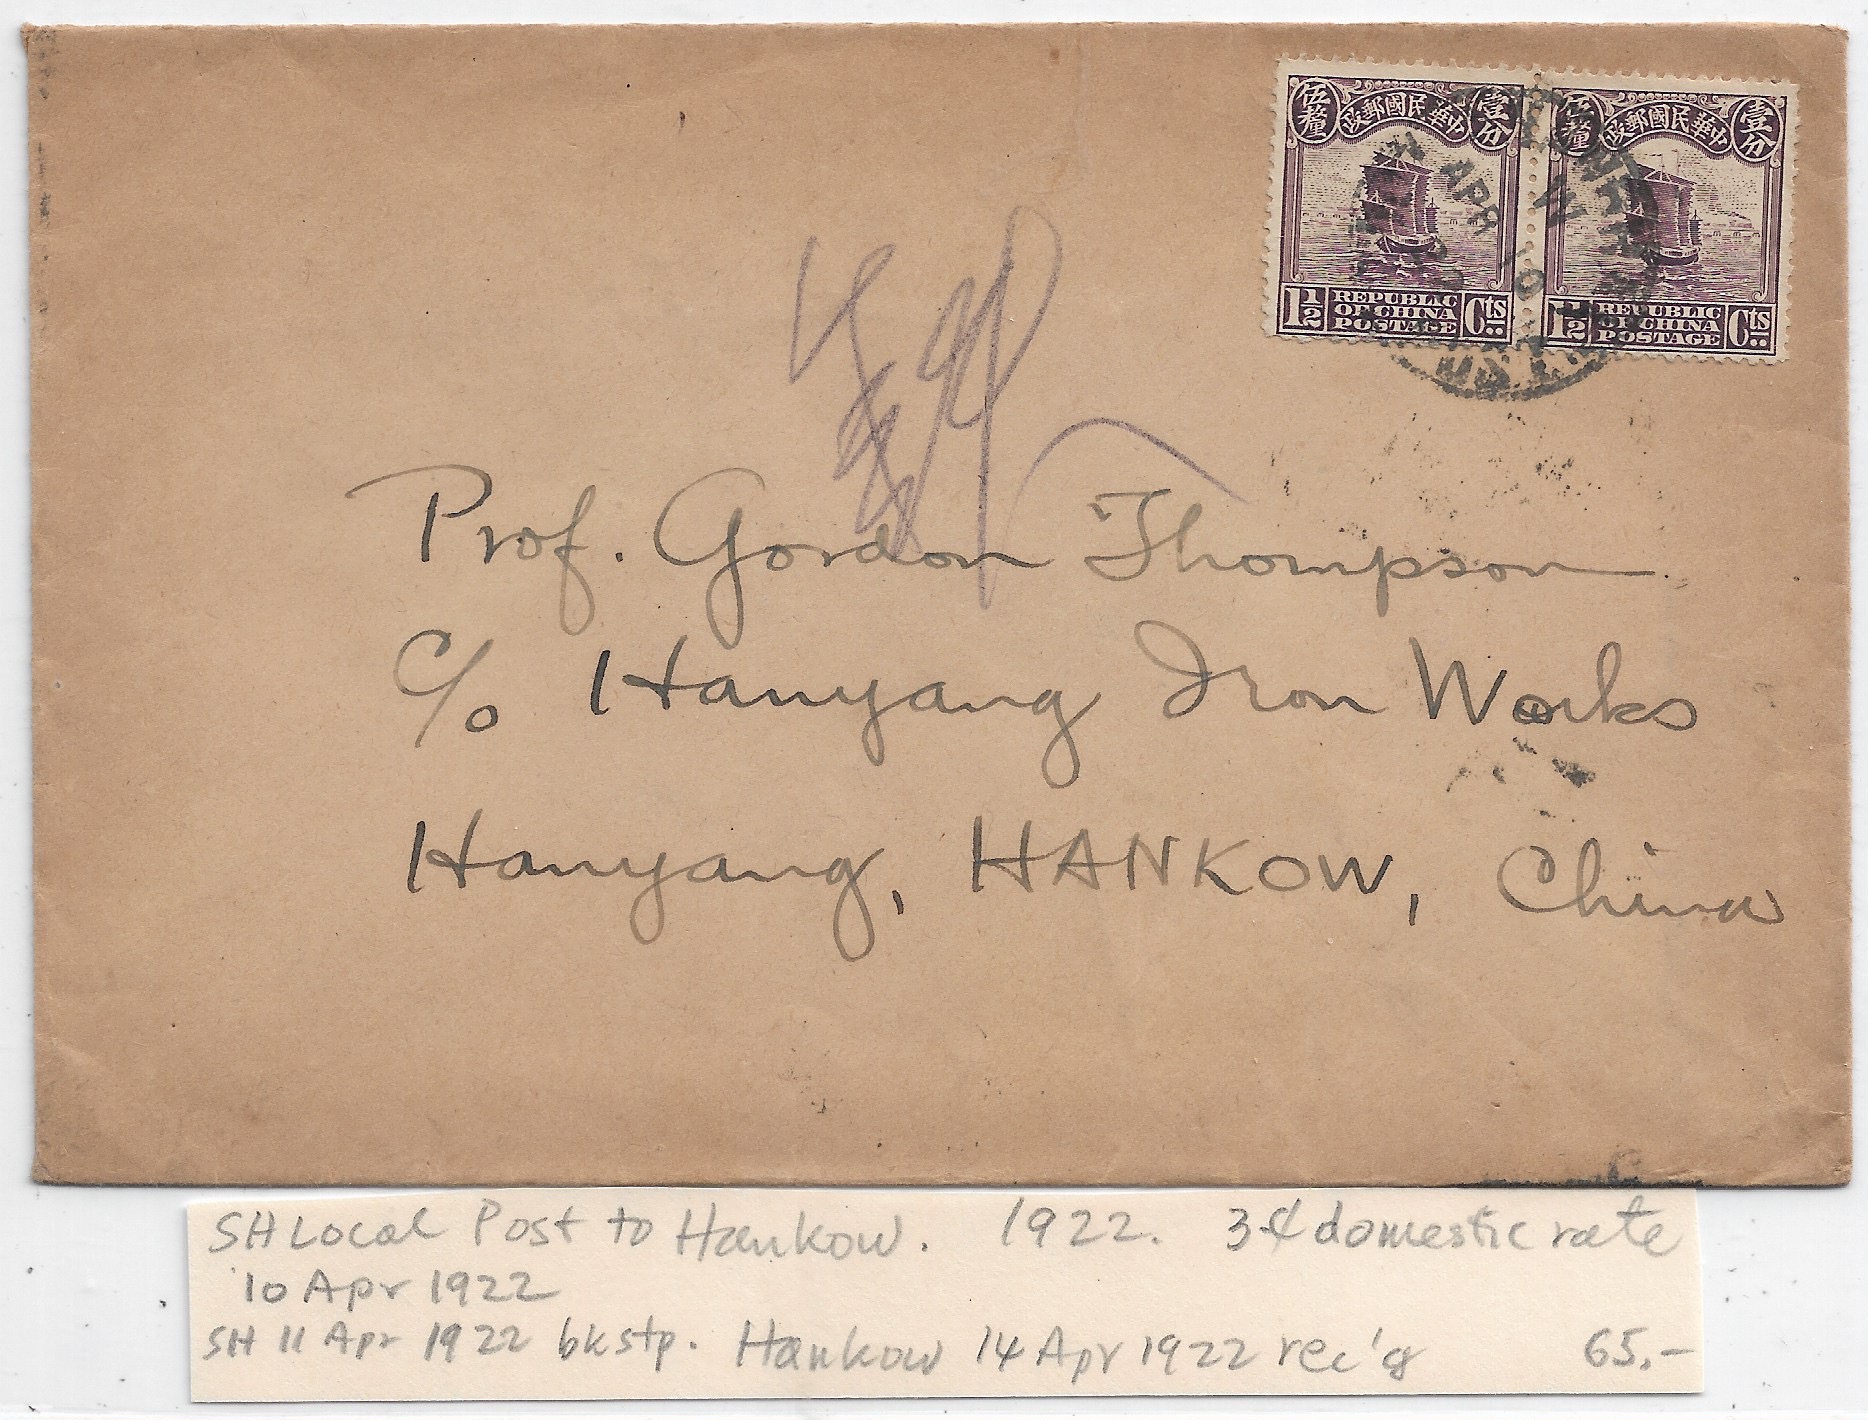 伍釐 政郵國民華中 壹分
伍釐 政郵國民華中 壹分
APR 10
1½ REPUBLIC OF CHINA POSTAGE Cts
1½ REPUBLIC OF CHINA POSTAGE Cts
Prof. Gordon Thompson
c/o Hanyang Iron Works
Hanyang, HANKOW, China
SH Local Post to Hankow. 1922. 3¢ domestic rate
10 Apr 1922
SH 11 Apr 1922 bkstp. Hankow 14 Apr 1922 rec'g 65.-